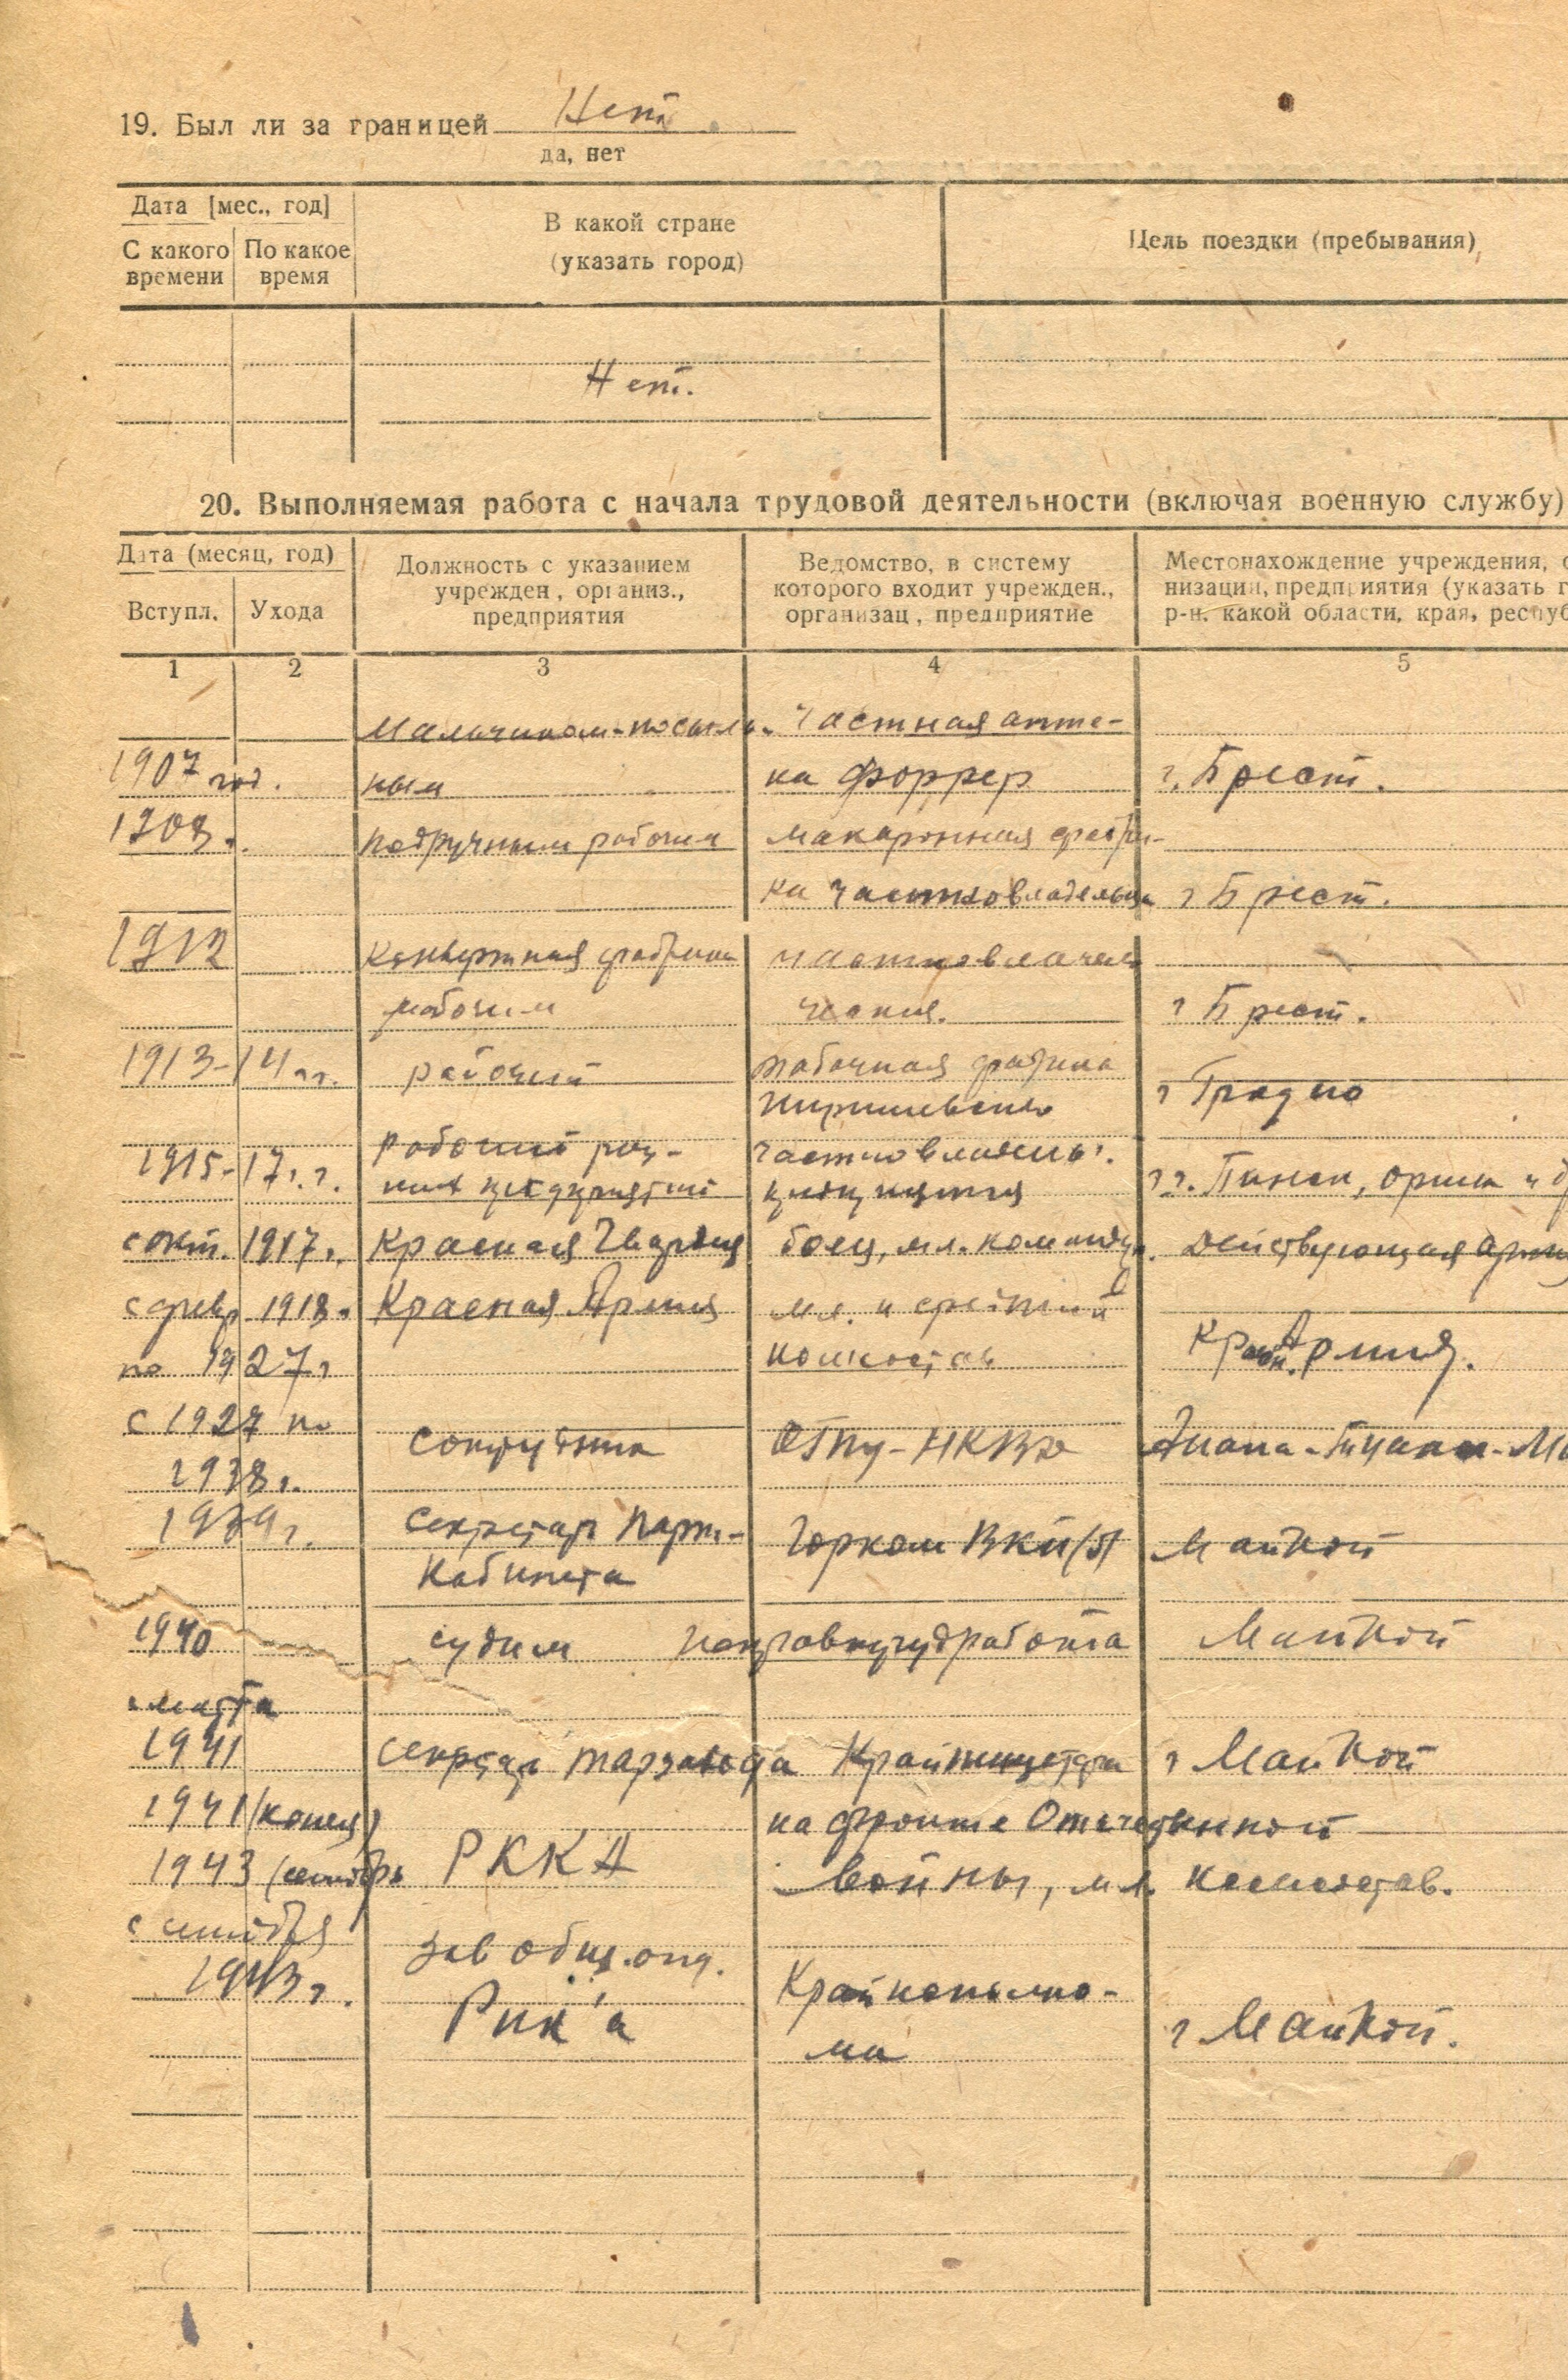 19. Был ли за границей Нет.
да, нет
Дата [мес., год]
С какого времени
По какое время
В какой стране
(указать город)
Цель поездки (пребывания)
Нет.
20. Выполняемая работа с начала трудовой деятельности (включая военную службу)
Дата (месяц, год)
Вступл.
Ухода
Должность с указанием
учрежден, организ.,
предприятия
Ведомство, в систему
которого входит учрежден.,
организац, предприятие
Местонахождение учреждения,
низации, предприятия (указать г
р-н, какой области, края, респуб
1 2 3 4 5
Мальчиком-посыль- Частная апте-
1907 год. ным ка Форрер г. Брест.
1908. подручным рабочим макаронная фабри-
ка частновладельца г Брест.
1912 Конвертная фабрика
рабочим г Брест.
1913-14 гг. рабочий табачная фабрика
г Гродно
1915-17 г.г. Рабочий раз- частновладель.
ных предприятий предприятия гг. Пинск, Орша и д
с окт. 1917г. Красная Гвардия боец, мл. командир. Действующая арми
с февр 1918г Красная Армия мл. и средний
по 1927г комсостав Красн. Армия.
с 1927 по
1938г. сотрудник ОГПУ-НКВД
1939г. Секретарь Парт- Горком ВКП/б/ Майкоп
Кабинета
1940 судим исправтрудработа Майкоп
с марта
1941 секретарь тарзавода Крайпищетара г Майкоп
1941 (конец) на фронте Отечественной
1943 (сентябрь РККА войны, мл. комсостав.
с сентября
1943г. зав общ. отд. Крайисполко-
Рик'а ма г Майкоп.